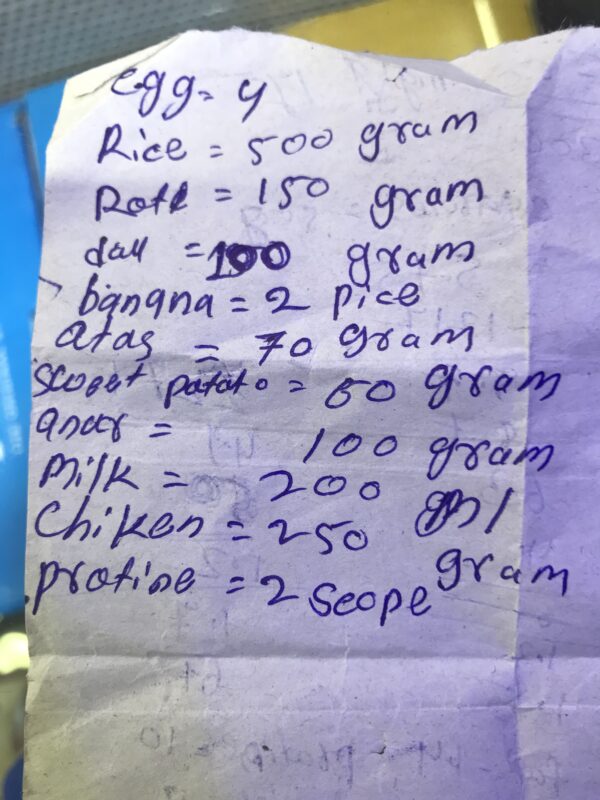 egg = 4
Rice = 500 gram
Roti = 150 gram
dall = 100 gram
banana = 2 pice
atas = 70 gram
sweet patato = 60 gram
anar = 100 gram
Milk = 200 ml
Chiken = 250 gram
protine = 2 scope